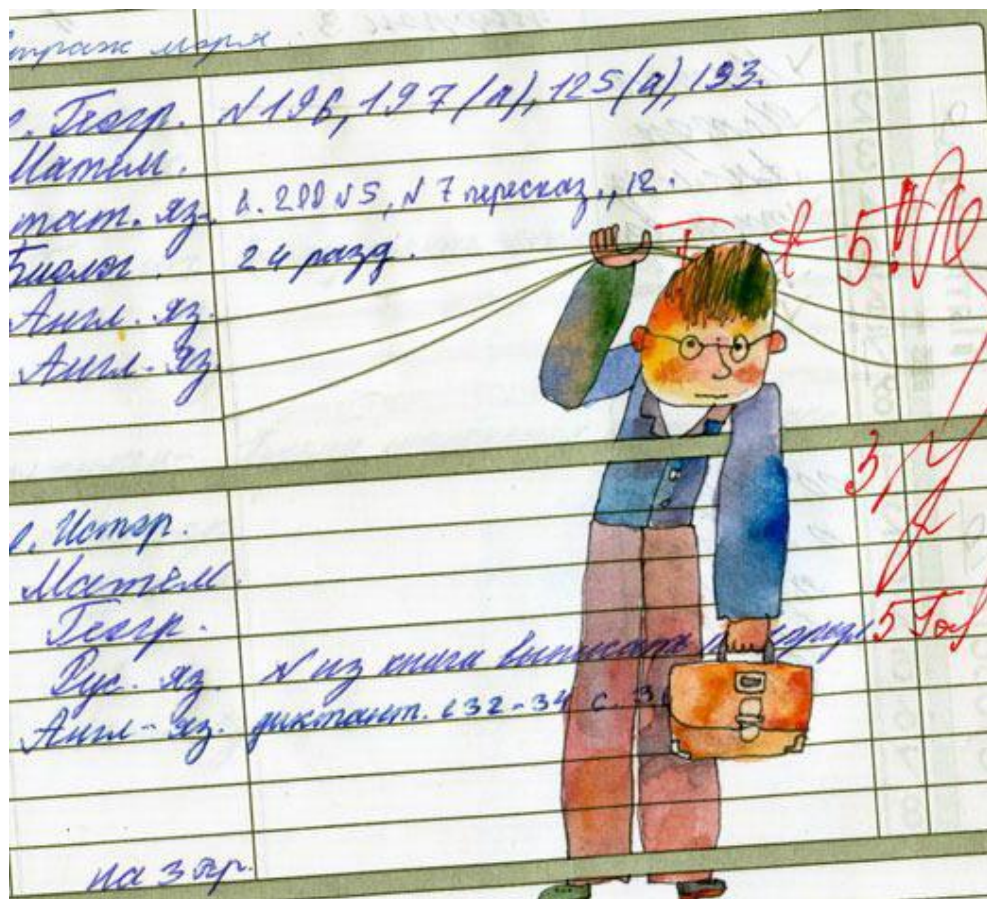 моря.
Геогр. N 196, 197 (а), 125 (а), 193.
Матем.
тат. яз. с. 200 N5, N7 пересказ., 12.
Биолог. 24 разд. 5
Англ. яз.
Англ. яз.
3
Истор.
Матем.
Геогр. 5
Рус. яз. N из книги выписать
Англ. яз. диктант. с 32-34 с.
на 3 гр.